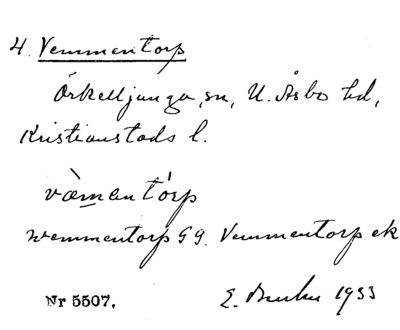 4. Vemmentorp
Örkelljunga sn, N. Åsbo hd,
Kristianstads l.
và̀mantórp
wemmentorp G9. Vemmentorp ek
Nr 5507. E. 1933